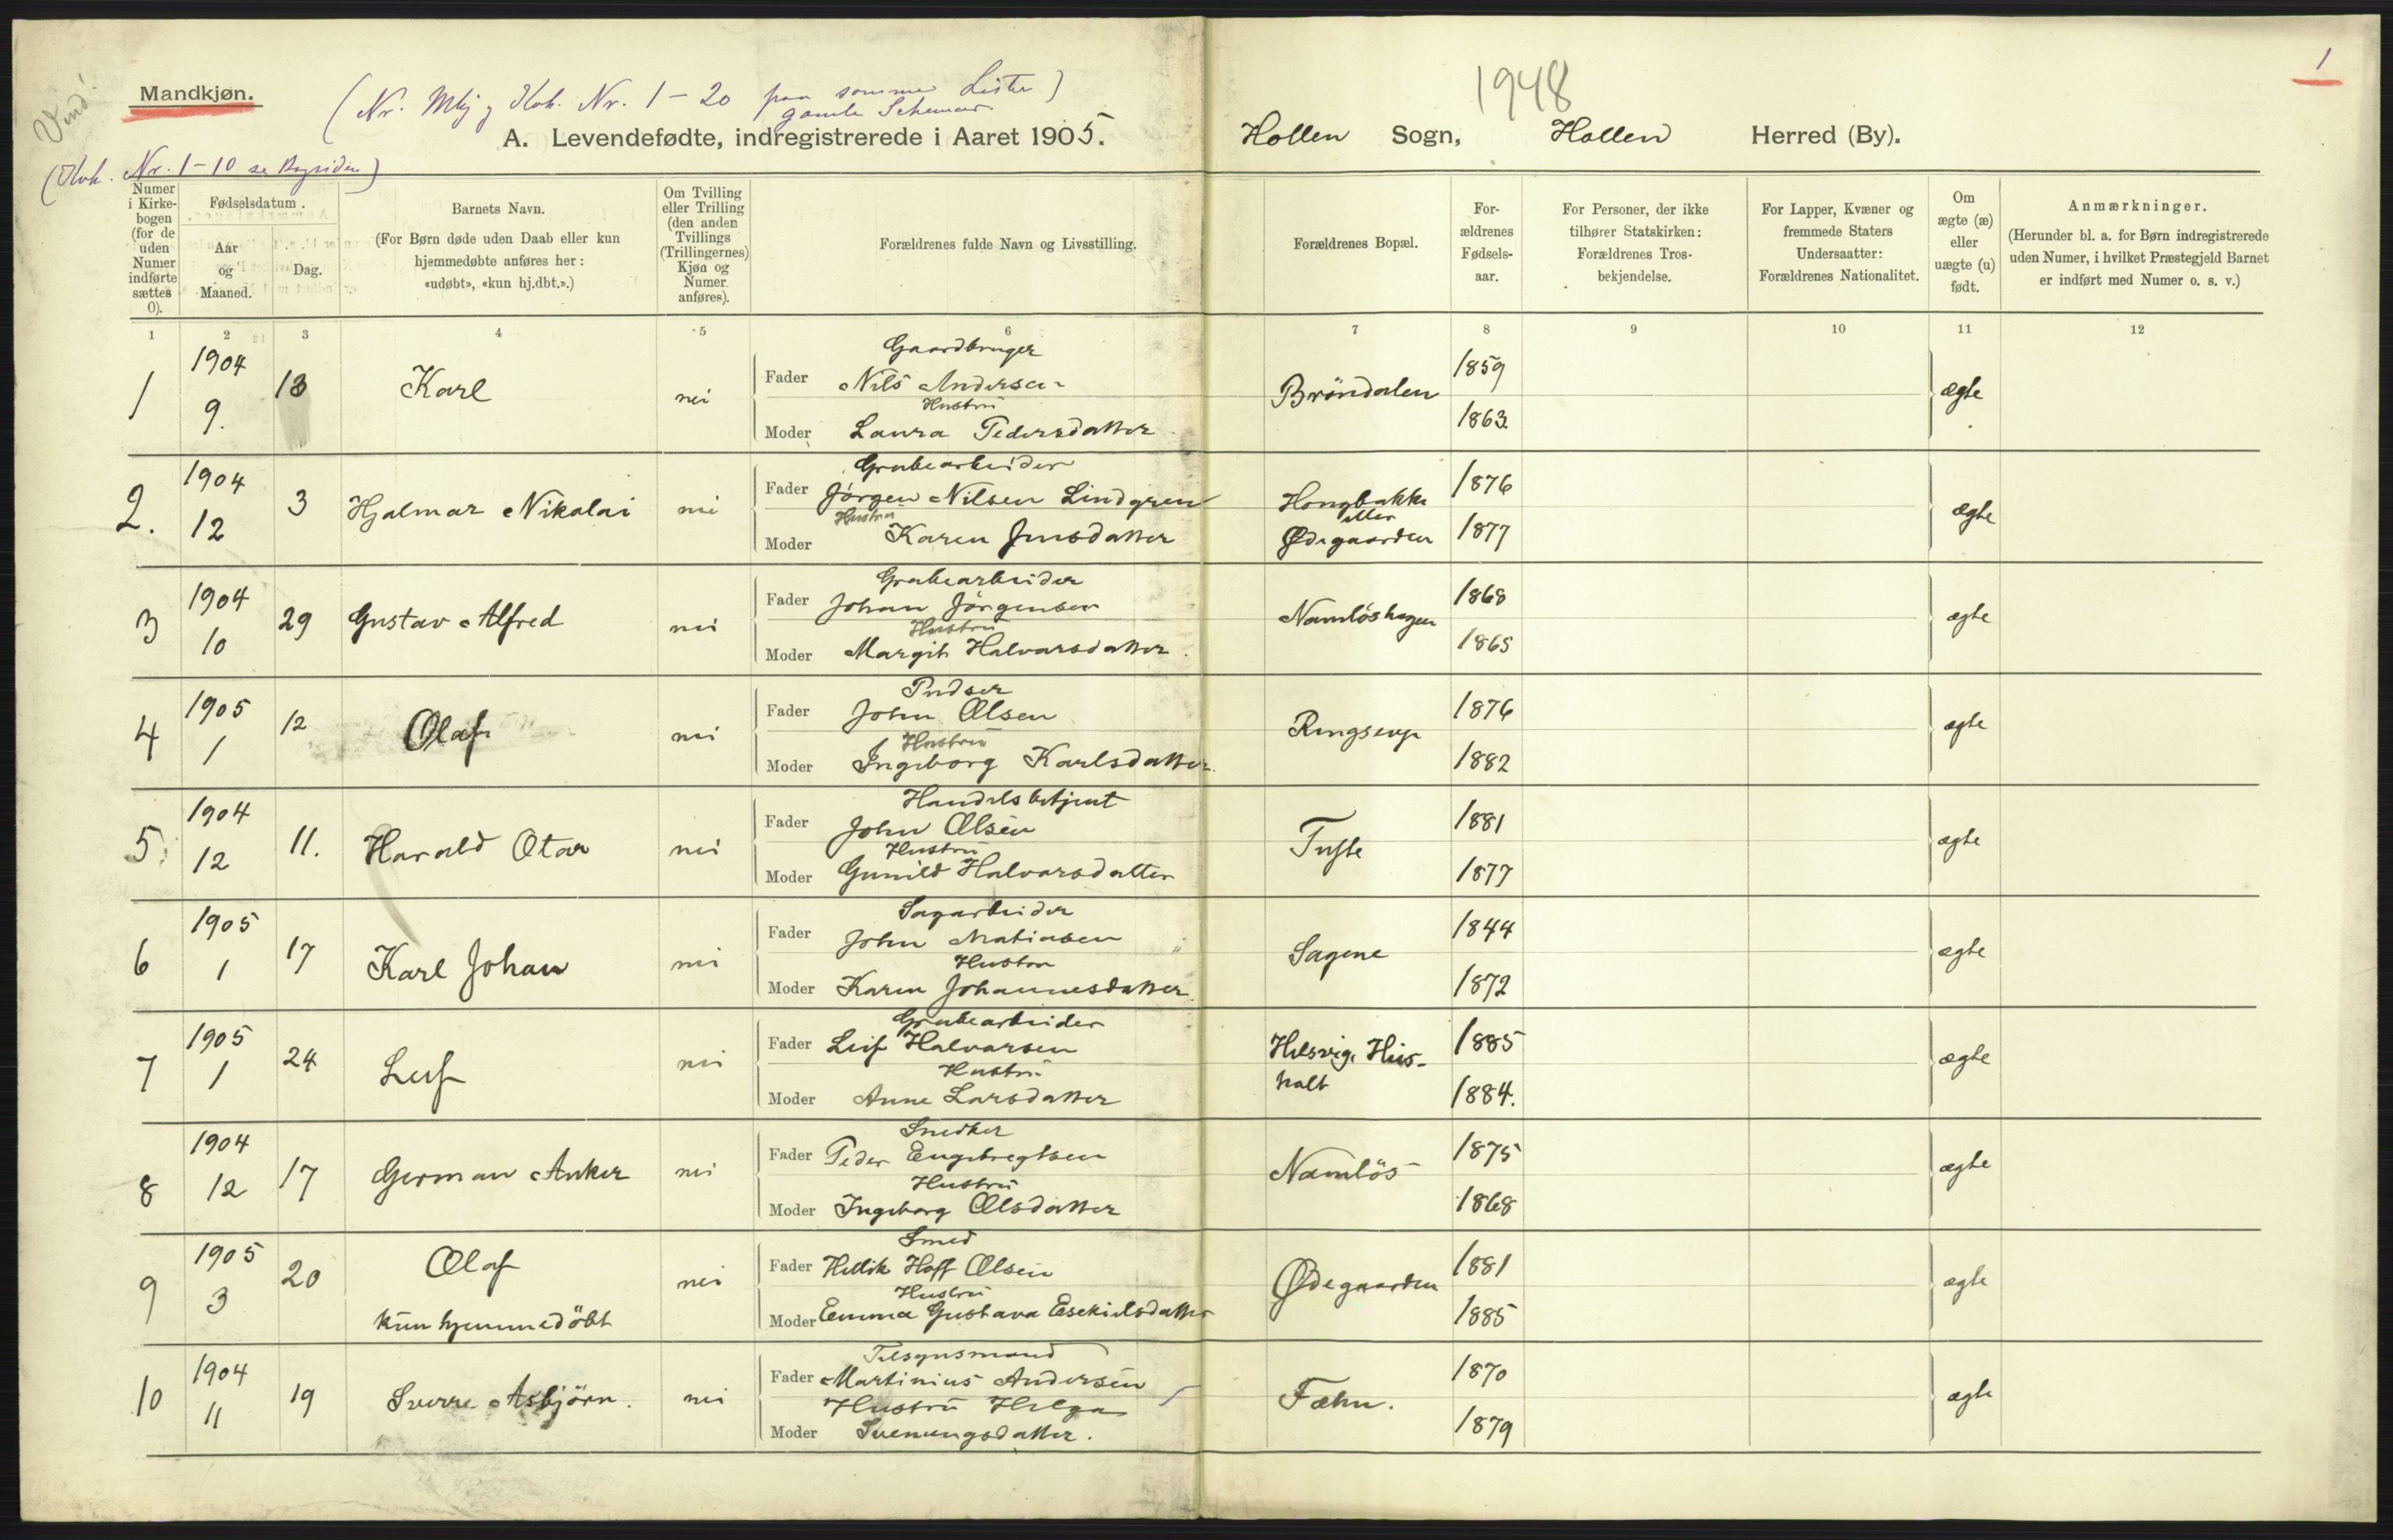 1
1948
Vend!
Mandkjøn.
(Nr. Mkj og Kvk. Nr. 1-20 paa samme Liste)
gamle Schemaer
A. Levendefødte, indregistrerede i Aaret 1905. Hollen Sogn, Hollen Herred (By).
(Kvk. Nr. 1-10 se Bagsiden)
Numer i Kirke-bogen (for de uden Numer indførte sættes 0).
Fødselsdatum.
Aar og Maaned.
Dag.
Barnets Navn.
(For Børn døde uden Daab eller kun hjemmedøbte anføres her: «udøbt», «kun hj.dbt.».)
Om Tvilling eller Trilling (den anden Tvillings (Trillingernes) Kjøn og Numer anføres).
Forældrenes fulde Navn og Livsstilling.
Forældrenes Bopæl.
For-ældrenes Fødsels-aar.
For Personer, der ikke tilhører Statskirken: Forældrenes Tros-bekjendelse.
For Lapper, Kvæner og fremmede Staters Undersaatter: Forældrenes Nationalitet.
Om ægte (æ) eller uægte (u) født.
Anmærkninger.
(Herunder bl. a. for Børn indregistrerede uden Numer, i hvilket Præstegjeld Barnet er indført med Numer o. s. v.)
1 2 3 4 5 6 7 8 9 10 11 12
Gaardbruger
1 1904 9. 13 Karl nei Fader Nils Andersen Bröndalen 1859 ægte
Hustru
Moder Laura Pedersdatter 1863.
Grubearbeider
2. 1904 12 3 Hjalmar Nikolai nei Fader Jörgen Nilsen Lindgren Hongbakke eller Ødegaarden 1876 ægte
Hustru
Moder Karen Jensdatter 1877
Grubearbeider
3 1904 10 29 Gustav Alfred nei Fader Johan Jörgensen Namlöshagen 1868 ægte
Hustru
Moder Margit Halvarsdatter. 1865
Pudser
4 1905 1 12 Olaf nei Fader John Olsen Ringsevja 1876 ægte
Hustru
Moder Ingeborg Karlsdatter. 1882
Handelsbetjent
5. 1904 12 11. Harald Otar nei Fader John Olsen Tufte 1881 ægte
Hustru
Moder Gunild Halvorsdatter 1877
Sagarbeider
6 1905 1 17 Karl Johan nei Fader John Matiasen Sagene 1844 ægte
Hustru
Moder Karen Johannesdatter 1872
Grubearbeider
7 1905 1 24 Leif nei Fader Leif Halvarsen Helsvig, Hus- 1885 ægte
Hustru
Moder Anne Larsdatter 1884.
Snedker
8 1904 12 17 German Anker nei Fader Peder Engebregtsen Namlös 1875 ægte
Hustru
Moder Ingeborg Olsdatter 1868
Smed
9 1905 3 20 Olaf nei Fader Hellik Hoff Olsen Ødegaarden 1881 ægte
Hustru
kun hjemmedöbt Moder Emma Gustava Esekielsdatter 1885
Tilsynsmand
10 1904 11 19 Sverre Asbjörn. nei Fader Martinius Andersen Fæhn. 1870 ægte
Hustru Helga
Moder Svenungsdatter. 1879